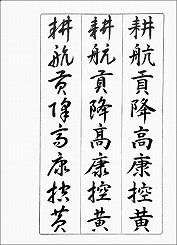 耕航貢降高康控黄
耕航貢降高康控黄
耕航貢降高康控黄